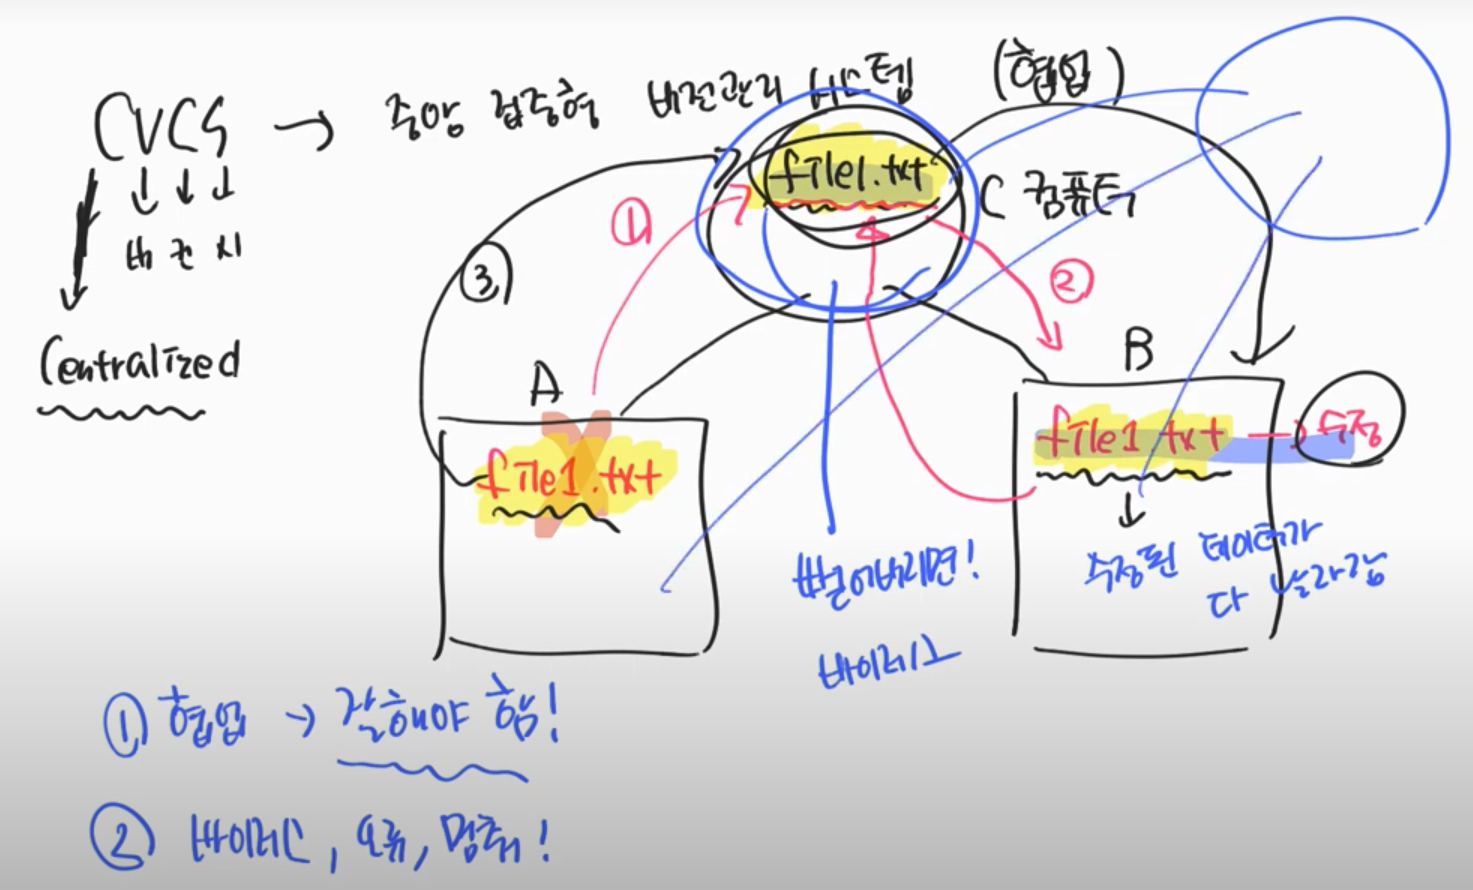 CVCS → 중앙 집중형 버전관리 시스템 (협업)
버 관 시
Centralized
file1.txt
C 컴퓨터
①
②
③
A
B
file1.txt
file1.txt → 수정
뻗어버리면!
바이러스
수정된 데이터가
다 날라감
① 협업 → 잘해야 함!
② 바이러스, 오류, 멈춰!